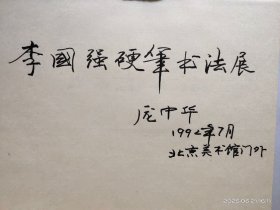 李國强硬筆书法展
庞中华
1992年7月
北京美术馆门外
2025-06-21 16:11